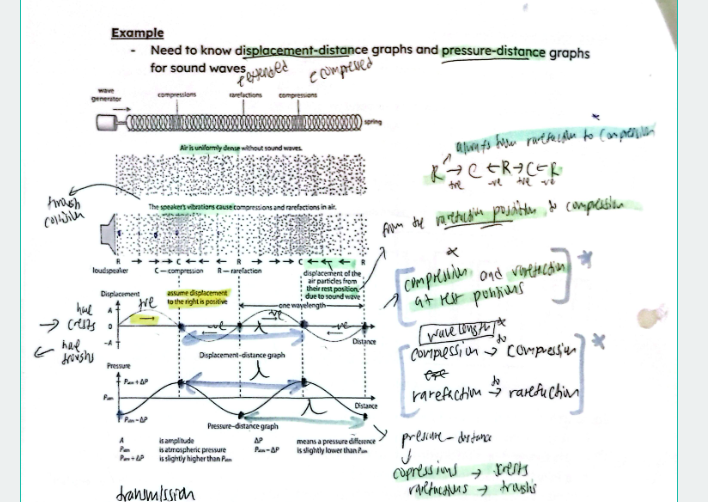 Example
- Need to know displacement-distance graphs and pressure-distance graphs
for sound waves
extended
compressed
wave
generator
compressions
rarefactions
compressions
spring
Air is uniformly dense without sound waves.
always from rarefaction to compression
R → C ← R → C ← R
+ve -ve +ve -ve
The speaker's vibrations cause compressions and rarefactions in air.
from the rarefaction position to compression
R
C
R
C
R
loudspeaker
C — compression
R — rarefaction
displacement of the
air particles from
their rest position,
due to sound wave
compression and rarefaction
at rest positions
Displacement
+ve
assume displacement
to the right is positive
one wavelength
A
0
-A
-ve
+ve
-ve
λ
Distance
→ crests
←
troughs
Displacement-distance graph
wavelength
compression → compression
to
rarefaction → rarefaction
to
Pressure
Patm + ΔP
Patm
Patm - ΔP
λ
λ
Distance
Pressure-distance graph
A is amplitude
Patm is atmospheric pressure
Patm + ΔP is slightly higher than Patm
ΔP means a pressure difference
Patm - ΔP is slightly lower than Patm
pressure - distance
copressions → crests
rarefactions → troughs
transmission